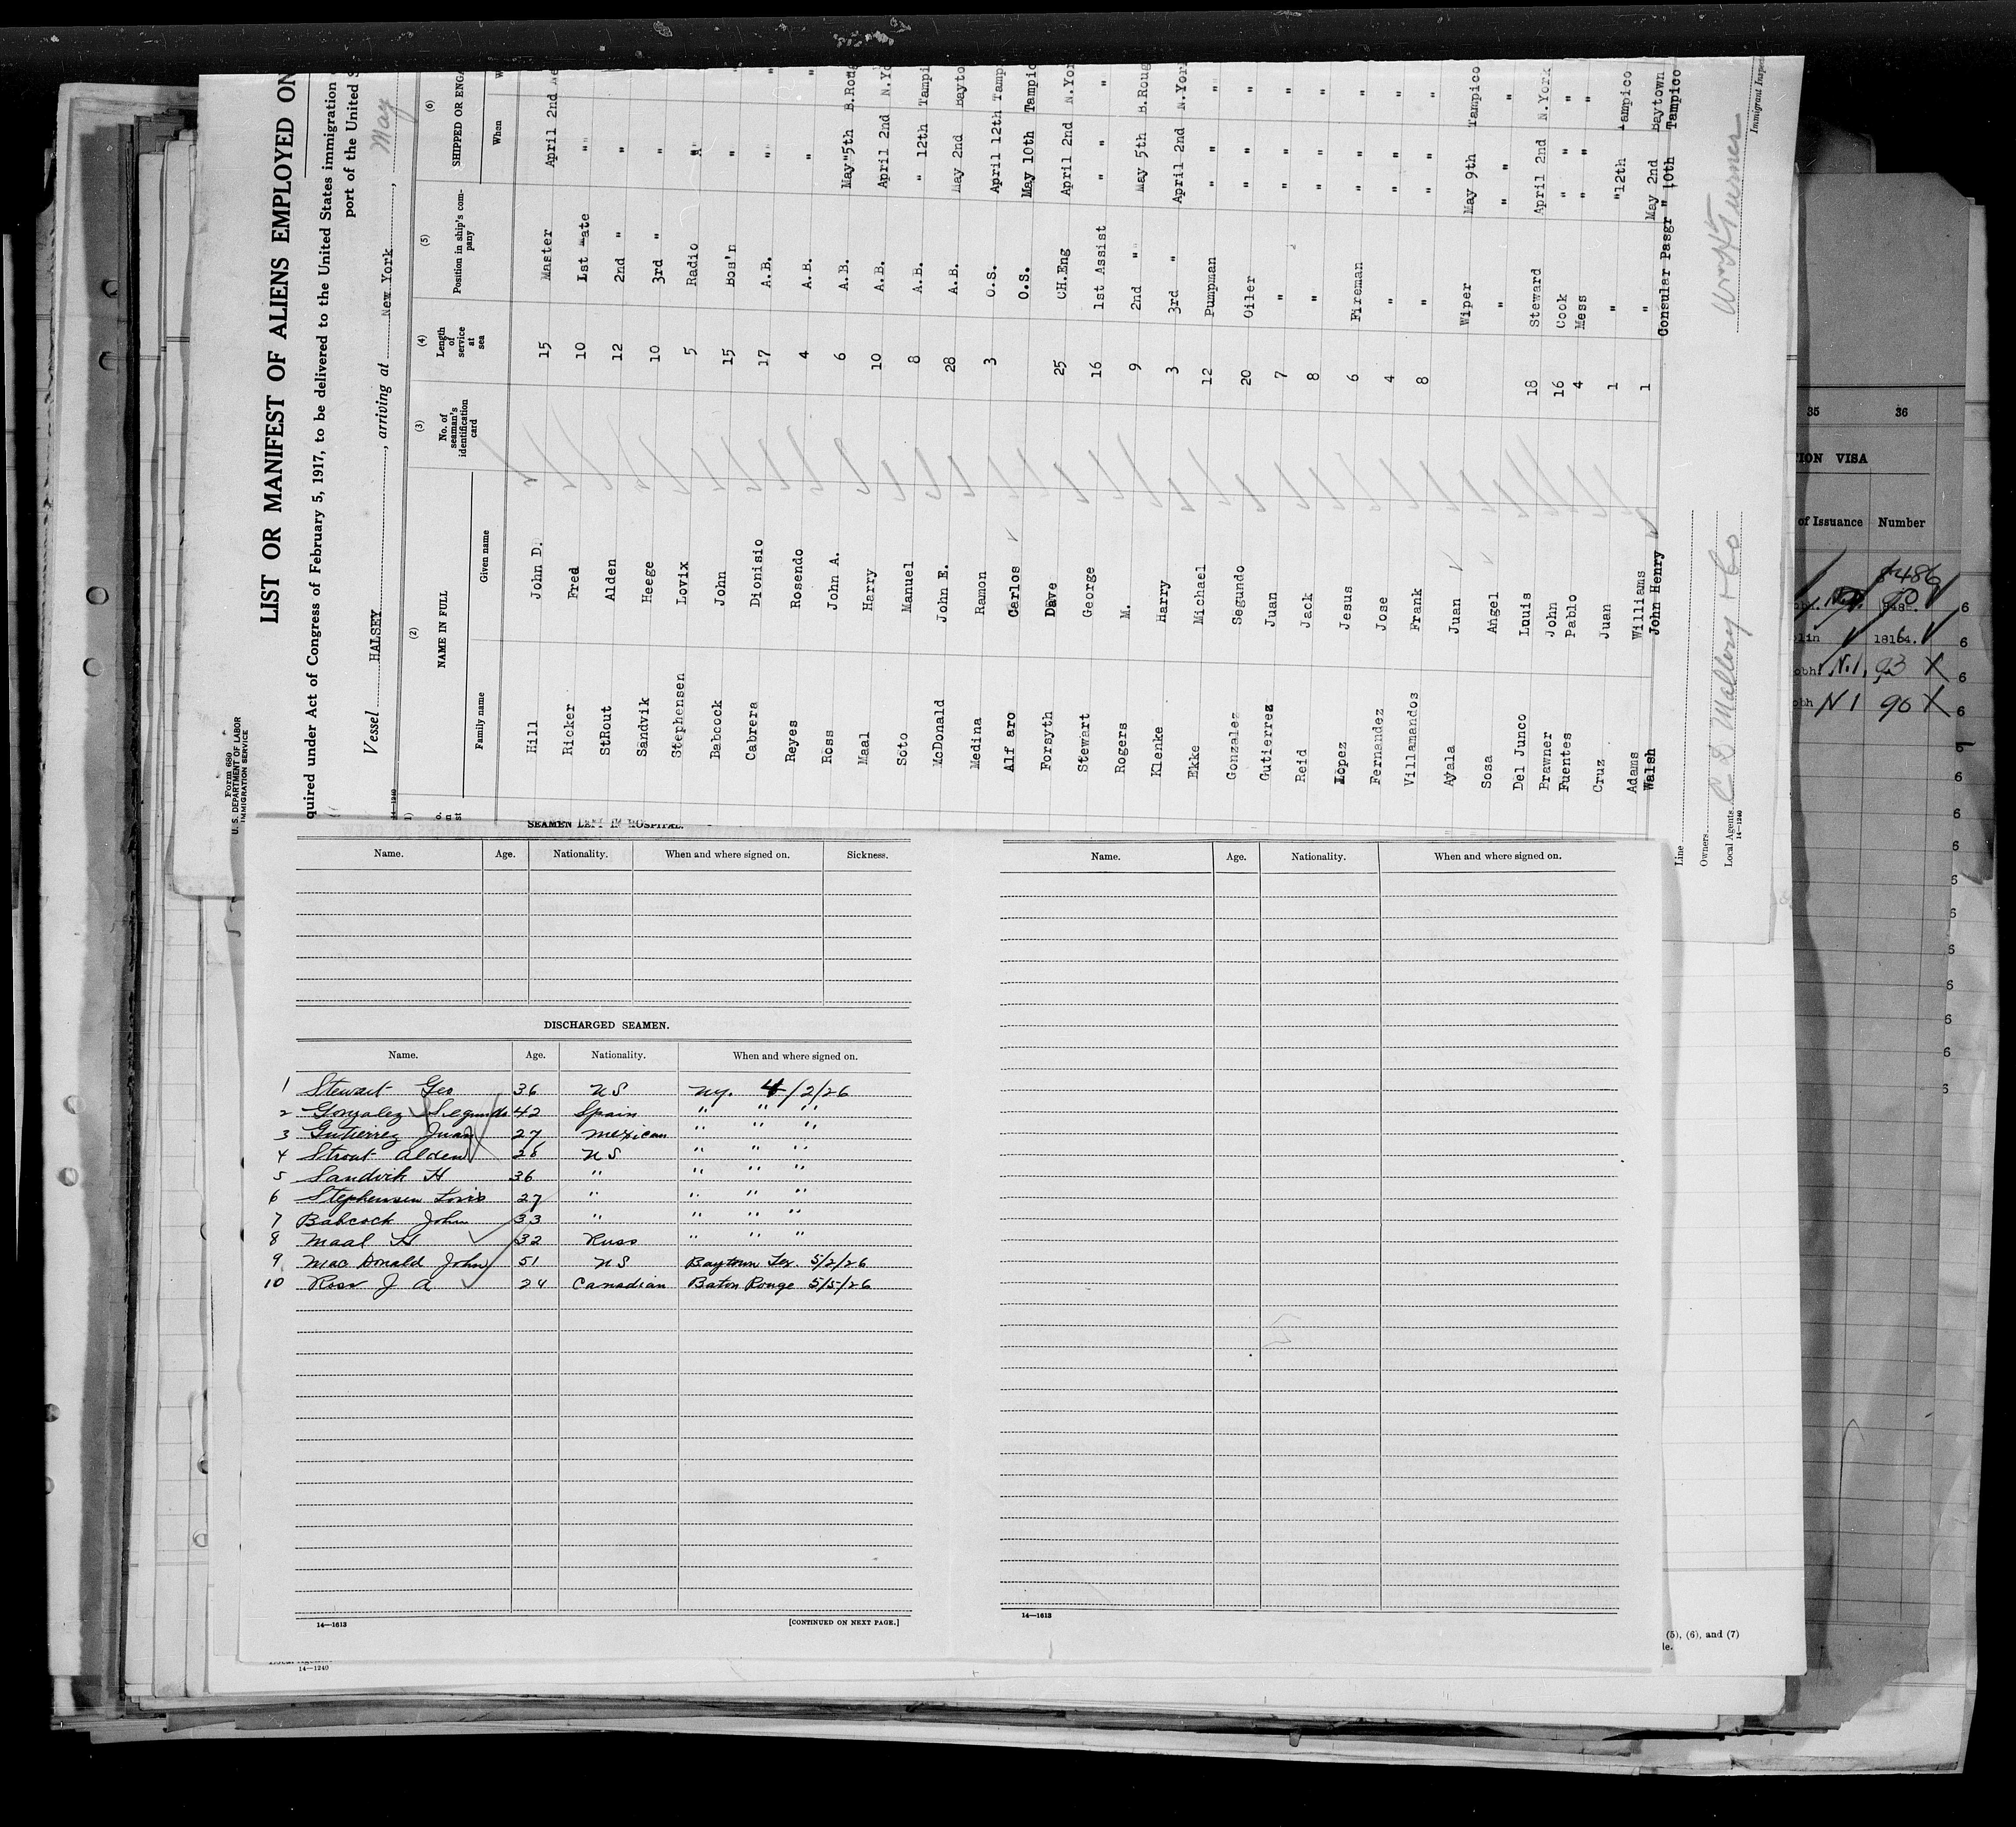 Form 680
U. S. DEPARTMENT OF LABOR
IMMIGRATION SERVICE
LIST OR MANIFEST OF ALIENS EMPLOYED ON
quired under Act of Congress of February 5, 1917, to be delivered to the United States immigration
port of the United S
Vessel HALSEY, arriving at New York, May
14—1240
(2) (3) (4) (5) (6)
NAME IN FULL No. of seaman's identification card Length of service at sea Position in ship's company SHIPPED OR ENGA
Family name Given name When
Hill John D. 15 Master April 2nd
Ricker Fred 10 Lst Mate " "
StRout Alden 12 2nd " " "
Sandvik Heege 10 3rd " " "
Stephensen Lovix 5 Radio "
Babcock John 15 Bos'n " "
Cabrera Dionisio 17 A.B. " "
Reyes Rosendo 4 A.B. " "
Ross John A. 6 A.B. May 5th B.Roug
Maal Harry 10 A.B. April 2nd N.Yo
Soto Manuel 8 A.B. " 12th Tampi
McDonald John E. 28 A.B. May 2nd Bayto
Medina Ramon 3 O.S. April 12th Tamp
Alf aro Carlos 0.S. May 10th Tampic
Forsyth Dave 25 CH.Eng April 2nd N.Yor
Stewart George 16 1st Assist " " "
Rogers M. 9 2nd " May 5th B.Roug
Klenke Harry 3 3rd " April 2nd N.York
Ekke Michael 12 Pumpman " " "
Gonzalez Segundo 20 Oiler " " "
Gutierrez Juan 7 " " " "
Reid Jack 8 " " " "
Lopez Jesus 6 Fireman " " "
Fernandez Jose 4 " " " "
Villamandos Frank 8 " " " "
Ayala Juan Wiper May 9th Tampico
Sosa Angel " " " "
Del Junco Louis 18 Steward April 2nd N.York
Brawner John 16 Cook " " "
Fuentes Pablo 4 Mess " " "
Cruz Juan 1 " "12th Tampico
Adams Williams 1 " May 2nd Baytown
Walsh John Henry Consular Pasgr " 10th Tampico
Line
Owners
Local Agents C D Mallory & Co
14—1240
Immigrant Inspec
35 36
TION VISA
of Issuance Number
8486
18164.
N.I. 93 X
N I 90 X
SEAMEN LEFT IN HOSPITAL.
Name. Age. Nationality. When and where signed on. Sickness.
DISCHARGED SEAMEN.
Name. Age. Nationality. When and where signed on.
1 Stewart Geo 36 US NY. 4/2/26
2 Gonzalez Segundo 42 Spain " " "
3 Gutierrez Juan 27 Mexican " " "
4 Strout Alden 28 US " " "
5 Sandvik H 36 " " " "
6 Stephensen Lovis 27 " " " "
7 Babcock John 33 " " " "
8 Maal H 32 Russ " " "
9 Mac Donald John 51 US Baytown Tex. 5/2/26
10 Ross J A 24 Canadian Baton Rouge 5/5/26
14—1613 [CONTINUED ON NEXT PAGE.]
Name. Age. Nationality. When and where signed on.
14—1613
(5), (6), and (7)
14—1240